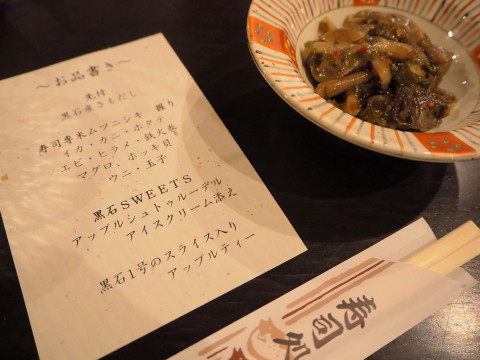 ～お品書き～
先付
黒石産さもだし
握り
寿司専米ムツニシキ
イカ・カニ・ホタテ
エビ・ヒラメ・鉄火巻
マグロ・ホッキ貝
ウニ・玉子
黒石SWEETS
アップルシュトゥルーデル
アイスクリーム添え
黒石1号のスライス入り
アップルティー
寿司処